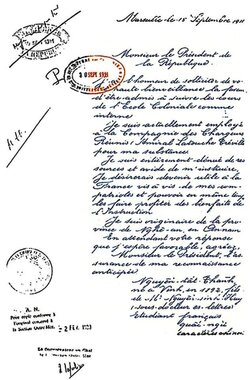 Marseille le 15 Septembre 1911
Monsieur le Président de
la République
l'honneur de solliciter de vo-
haute bienveillance la faveur
d'être admis à suivre les cours
de l'Ecole Coloniale comme
interne
Je suis actuellement employé
à la Compagnie des Chargeurs
Réunis (Amiral Latouche Tréville
pour ma subsistance
Je suis entièrement dénué de res-
sources et avide de m'instruire.
Je désirerais devenir utile à la
France vis à vis de mes com-
patriotes et pouvoir en même temps
les faire profiter des bienfaits de
l'Instruction
Je suis originaire de la pro-
vince de Nghê-an, en Annam
En attendant votre réponse
que j'espère favorable, agréez,
Monsieur le Président, l'as-
surance de ma reconnaissance
anticipée
Nguyễn tất Thành
né à Vinh, en 1892, fils
de Mr Nguyễn sinh Huy
sous-docteur ès-lettres
Etudiant français
quốc-ngữ
caractères chinois
20 SEPT 1911
A. N.
2 FEV 1983